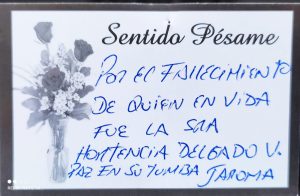 Sentido Pésame
POR EL FALLECIMIENTO
DE QUIEN EN VIDA
FUE LA SRA
HORTENCIA DELGADO V.
PAZ EN SU TUMBA JAROMA